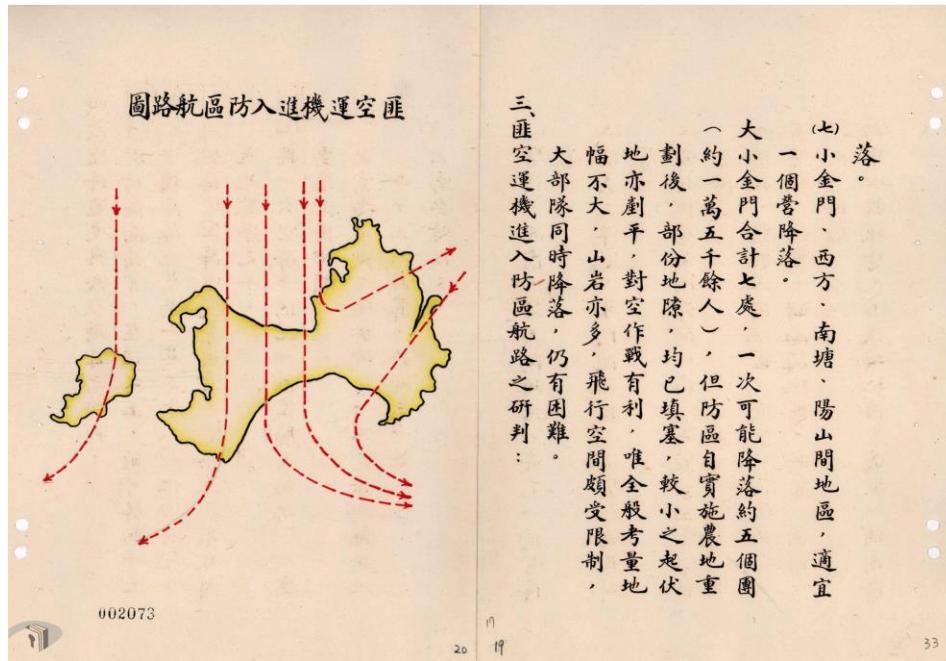 落。
㈦小金門、西方、南塘、陽山間地區，適宜
一個營降落。
大小金門合計七處，一次可能降落約五個團
（約一萬五千餘人），但防區自實施農地重
劃後，部份地隙，均已填塞，較小之起伏
地亦剷平，對空作戰有利，唯全般考量地
幅不大，山岩亦多，飛行空間頗受限制，
大部隊同時降落，仍有困難。
三、匪空運機進入防區航路之研判：
圖路航區防入進機運空匪
002073
20
17
19
33